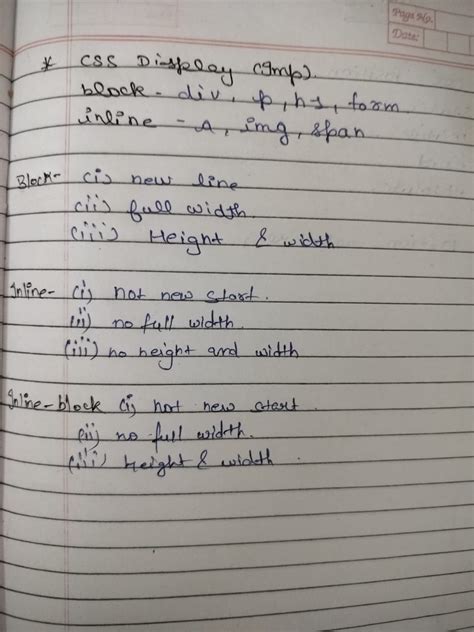 Page No.
Date:
* CSS Display (Imp).
block - div, p, h1, form
inline - a, img, span
Block- (i) new line
(ii) full width.
(iii) Height & width
Inline- (i) not new start.
(ii) no full width.
(iii) no height and width
Inline-block (i) not new start.
(ii) no full width.
(iii) Height & width.